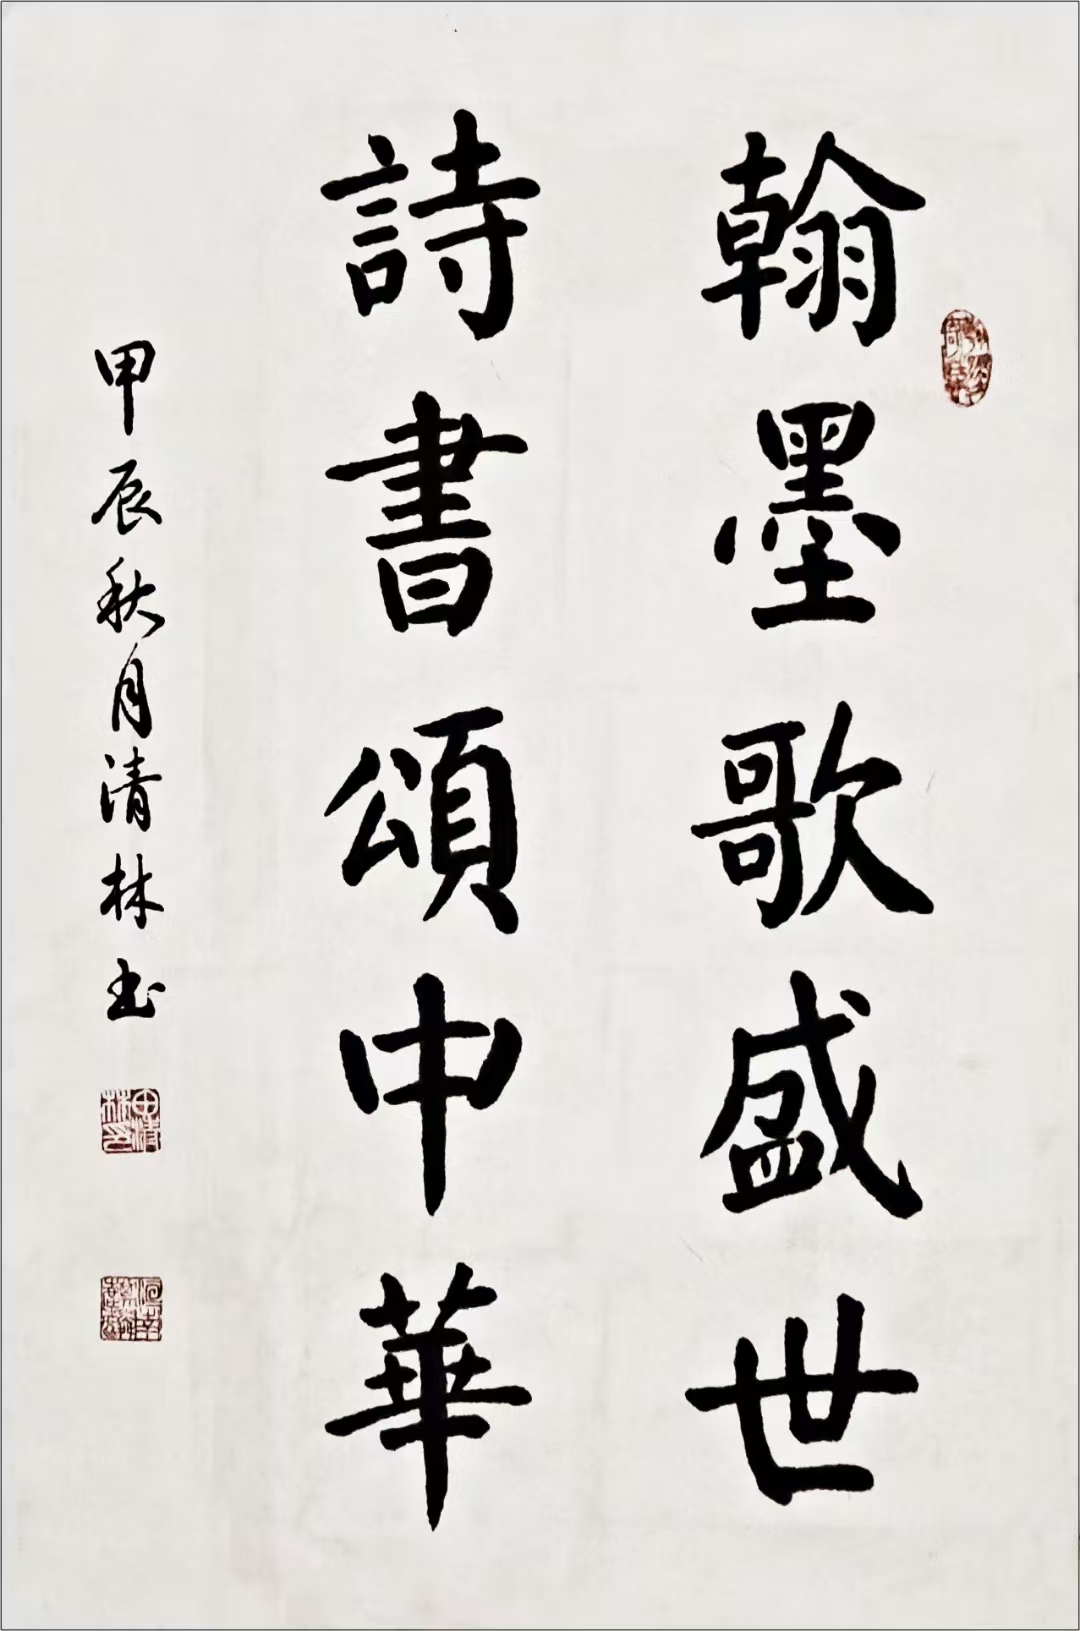 翰墨歌盛世
詩書頌中華
甲辰秋月清林书
田清林印